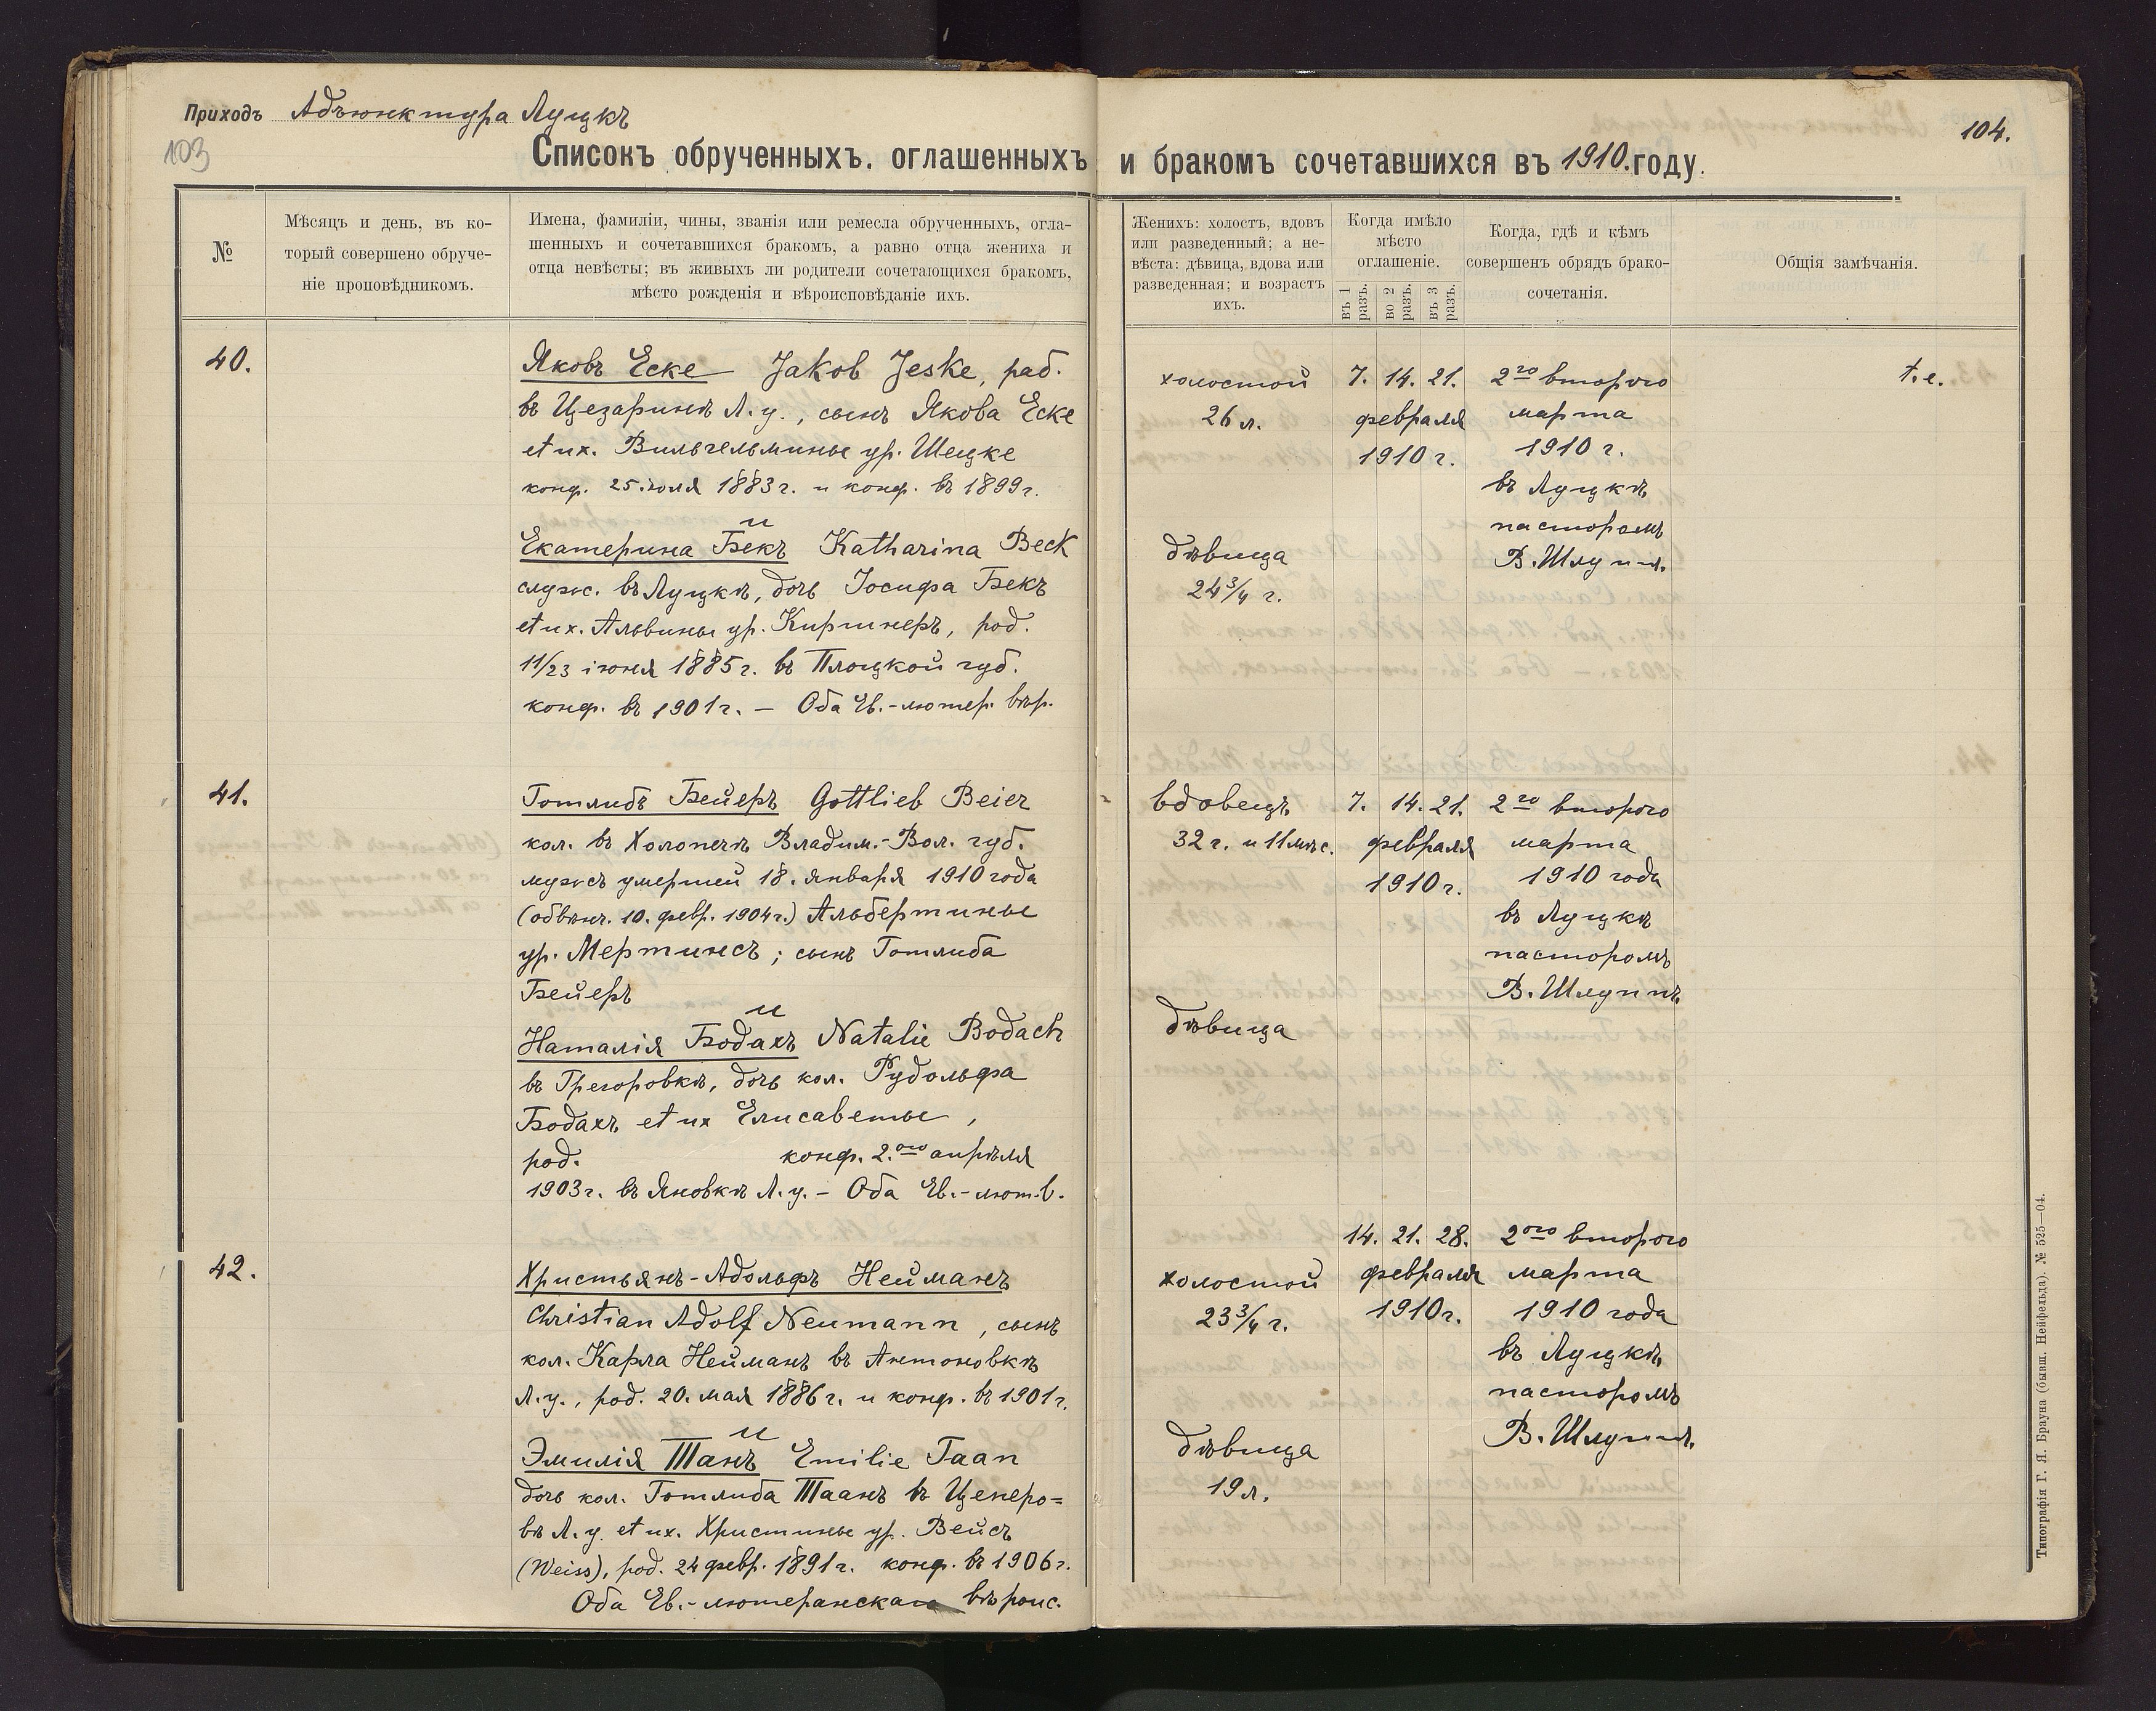 Приходъ Адъюнктура Луцкъ
103
104.
Списокъ обрученныхъ. оглашенныхъ и бракомъ сочетавшихся въ 1910.году.
№
Мѣсяцъ и день, въ ко-
торый совершено обруче-
ніе проповѣдникомъ.
Имена, фамиліи, чины, званія или ремесла обрученныхъ, огла-
шенныхъ и сочетавшихся бракомъ, а равно отца жениха и
отца невѣсты; въ живыхъ ли родители сочетающихся бракомъ,
мѣсто рожденія и вѣроисповѣданіе ихъ.
Женихъ: холостъ, вдовъ
или разведенный; а не-
вѣста: дѣвица, вдова или
разведенная; и возрастъ
ихъ.
Когда имѣло
мѣсто
оглашеніе.
въ 1 разъ.
во 2 разъ.
въ 3 разъ.
Когда, гдѣ и кѣмъ
совершенъ обрядъ брако-
сочетанія.
Общія замѣчанія.
40.
Яковъ Еске Jakob Jeske, раб.
въ Цезаринѣ Л. у., сынъ Якова Еске
et ux. Вильгельмины ур. Шецке
конф. 25. іюля 1883 г. и конф. въ 1899 г.
и
Екатерина Бекъ Katharina Beck
служ. въ Луцкѣ, дочь Іосифа Бекъ
et ux. Альвины ур. Киршнеръ, род.
11/23 іюня 1885 г. въ Плоцкой губ.
конф. въ 1901 г. — Оба Ев.-лютер. вѣр.
холостой
26 л.
дѣвица
24 3/4 г.
7. 14. 21.
февраля
1910 г.
2го второго
марта
1910 г.
въ Луцкѣ
пасторомъ
В. Шлуппъ.
t. e.
41.
Готлибъ Бейеръ Gottlieb Beier
кол. въ Холопечѣ Владим.-Вол. губ.
мужъ умершей 18. января 1910 года
(обвѣнч. 10. февр. 1904 г.) Альбертины
ур. Мертинсъ; сынъ Готлиба
Бейеръ
и
Наталія Бодахъ Natalie Bodach
въ Грегоровкѣ, дочь кол. Рудольфа
Бодахъ et ux Елисаветы,
род. конф. 2.ого апрѣля
1903 г. въ Яновкѣ Л. у. – Оба Ев.-лют. в.
вдовецъ
32 г. и 11 мѣс.
дѣвица
7. 14. 21.
февраля
1910 г.
2го второго
марта
1910 года
въ Луцкѣ
пасторомъ
В. Шлуппъ
42.
Христьянъ-Адольфъ Нейманъ
Christian Adolf Neumann, сынъ
кол. Карла Нейманъ въ Антоновкѣ
Л. у., род. 20. мая 1886 г. и конф. въ 1901 г.
и
Эмилія Танъ Emilie Taan
дочь кол. Готлиба Таанъ въ Цеперо=
вѣ Л. у. et ux. Христины ур. Вейсъ
(Weiss), род. 24 февр. 1891 г. конф. въ 1906 г.
Оба Ев.-лютеранскаго вѣроис.
холостой
23 3/4 г.
дѣвица
19 л.
14. 21. 28.
февраля
1910 г.
2ого второго
марта
1910 года
въ Луцкѣ
пасторомъ
В. Шлуппъ.
Типографія Г. Я. Брауна (бывш. Нейфельда). № 525—04.